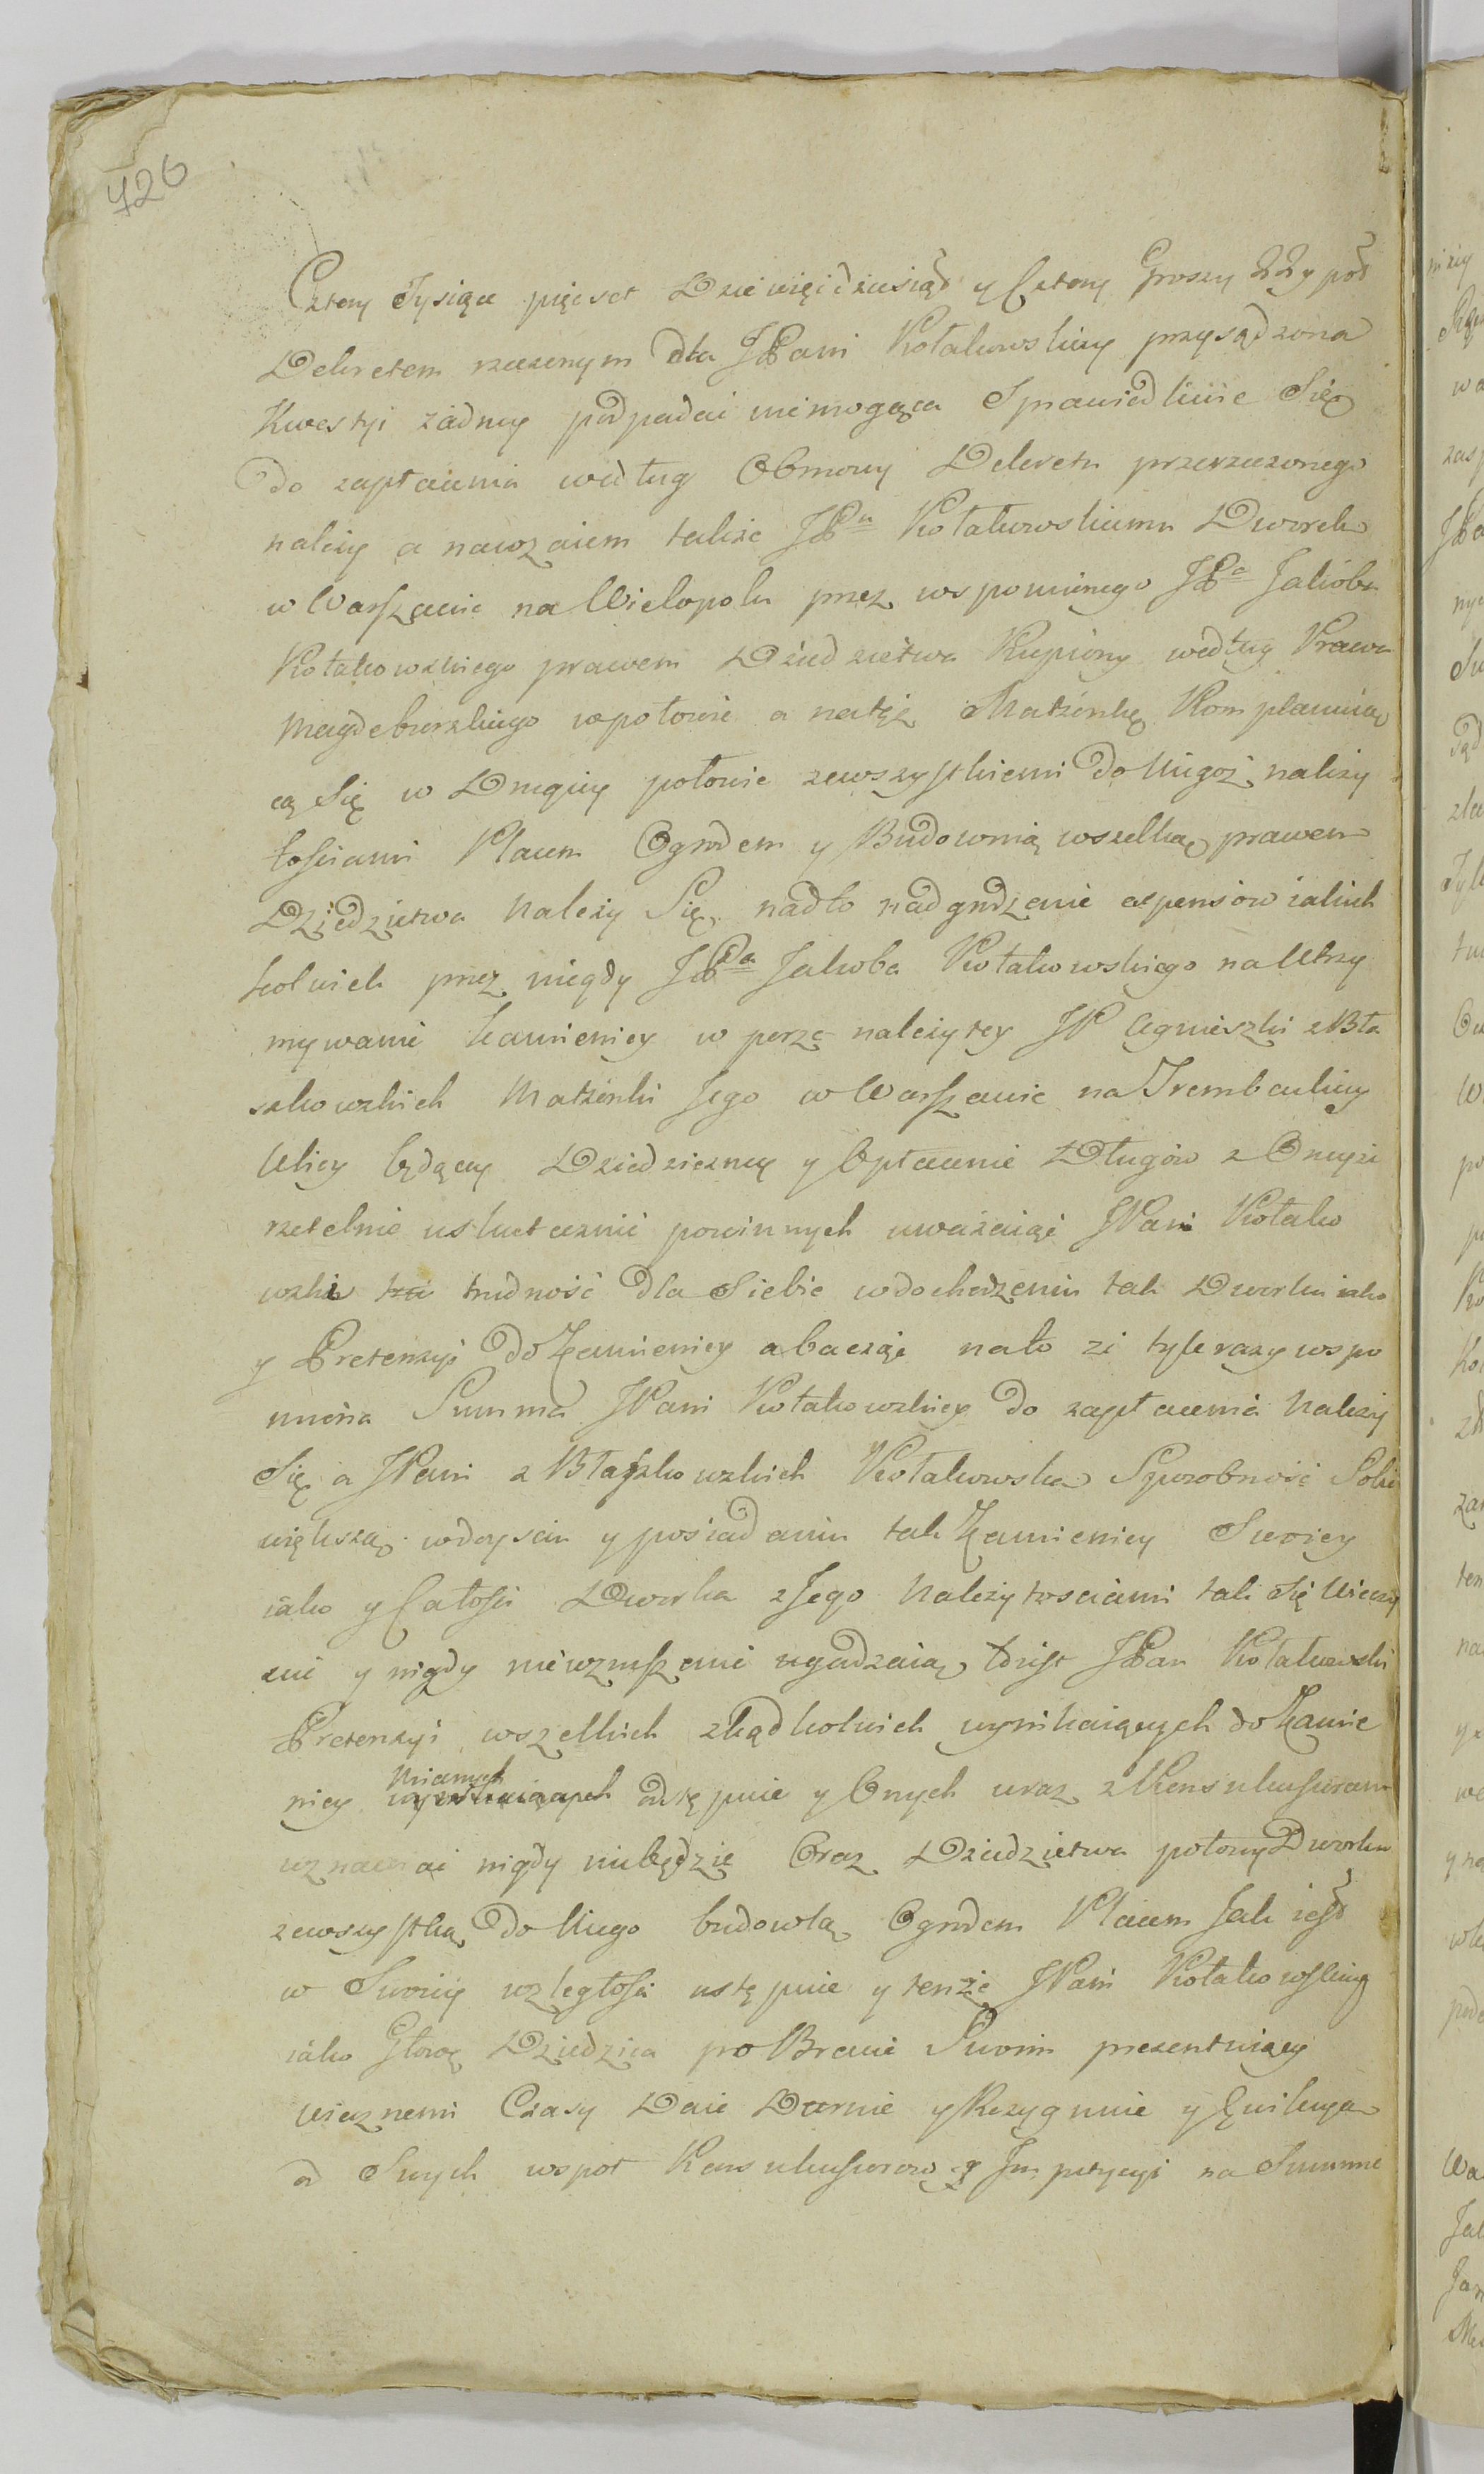 726
Cztery Tysiące pięcset Dziewięcdziesiąt y Cztery Groszy 22 y pół
Dekretem rzeczonym dla JPani Kołakowskiey przysądzona
Kwestyi żadney podpadać niemogąca Sprawiedliwie Się
do zapłacenia według Obmowy Dekretu przerzeczonego
należy a nawzaiem także JPu Kołakowskiemu Dworek
w Warszawie na Wielopolu przez wspomnionego JPa Jakóba
Kołakowskiego prawem Dziedzictwa Kupiony według Prawa
Magdeburskiego wpołowie a natęż Małżonkę
cą Się w Drugiey połowie zewszystkiemi do Niegoż należy
tościami Placem Ogrodem y Budownią wszelką prawem
Dziedzictwa Należy Się, nadto nadgrodzenie expensow iakich
kolwiek przez niegdy JPa Jakoba Kołakowskiego na Utrzy
mywanie kamienicy w należytey JP Agnieszki z Bła
szkowskich Małżonki Jego w Warszawie na Trembackiey
Ulicy będącey Dziedziczney y Opłacenie Długow z Oneyże
rzetelnie uskutecznić powinnych uważaiąc JPani Kołako
wska trudność dla Siebie wdochodzeniu tak Dworku iako
y Pretensyi do Kamienicy a bacząc nato że tyle razy wspo
mniona Summa JPani Kołakowskiey do zapłacenia Należy
Się a JPani z Błaszkowskich Kołakowska Sposobność Sobie
większą wdoyściu y posiadaniu tak Kamienicy Swoiey
iako y Całości Dworka z Jego Należytosciami tak Się Wieczy
ście y nigdy niewzruszenie ugadzaią to iest JPan Kołakowski
Pretensyi wszelkich zkądkolwiek wynikaiących do Kamie
nicy Mianych odstępuie y Onych wraz z Konsukcessorami
wznawiać nigdy niebędzie Oraz Dziedzictwa połowy Dworku
zewszystką do Niego budowlą Ogrodem Placem Jak iest
w Swoiey rozległości ustępuie y tenże JPani Kołakowskiey
iako Głowę Dziedzica po Bracie Swoim prezentuiący
wiecznemi Czasy Daie Daruie y Rezygnuie y Kwituye
od Swych wspoł Konsukcessorow y Impetycyi na Summe